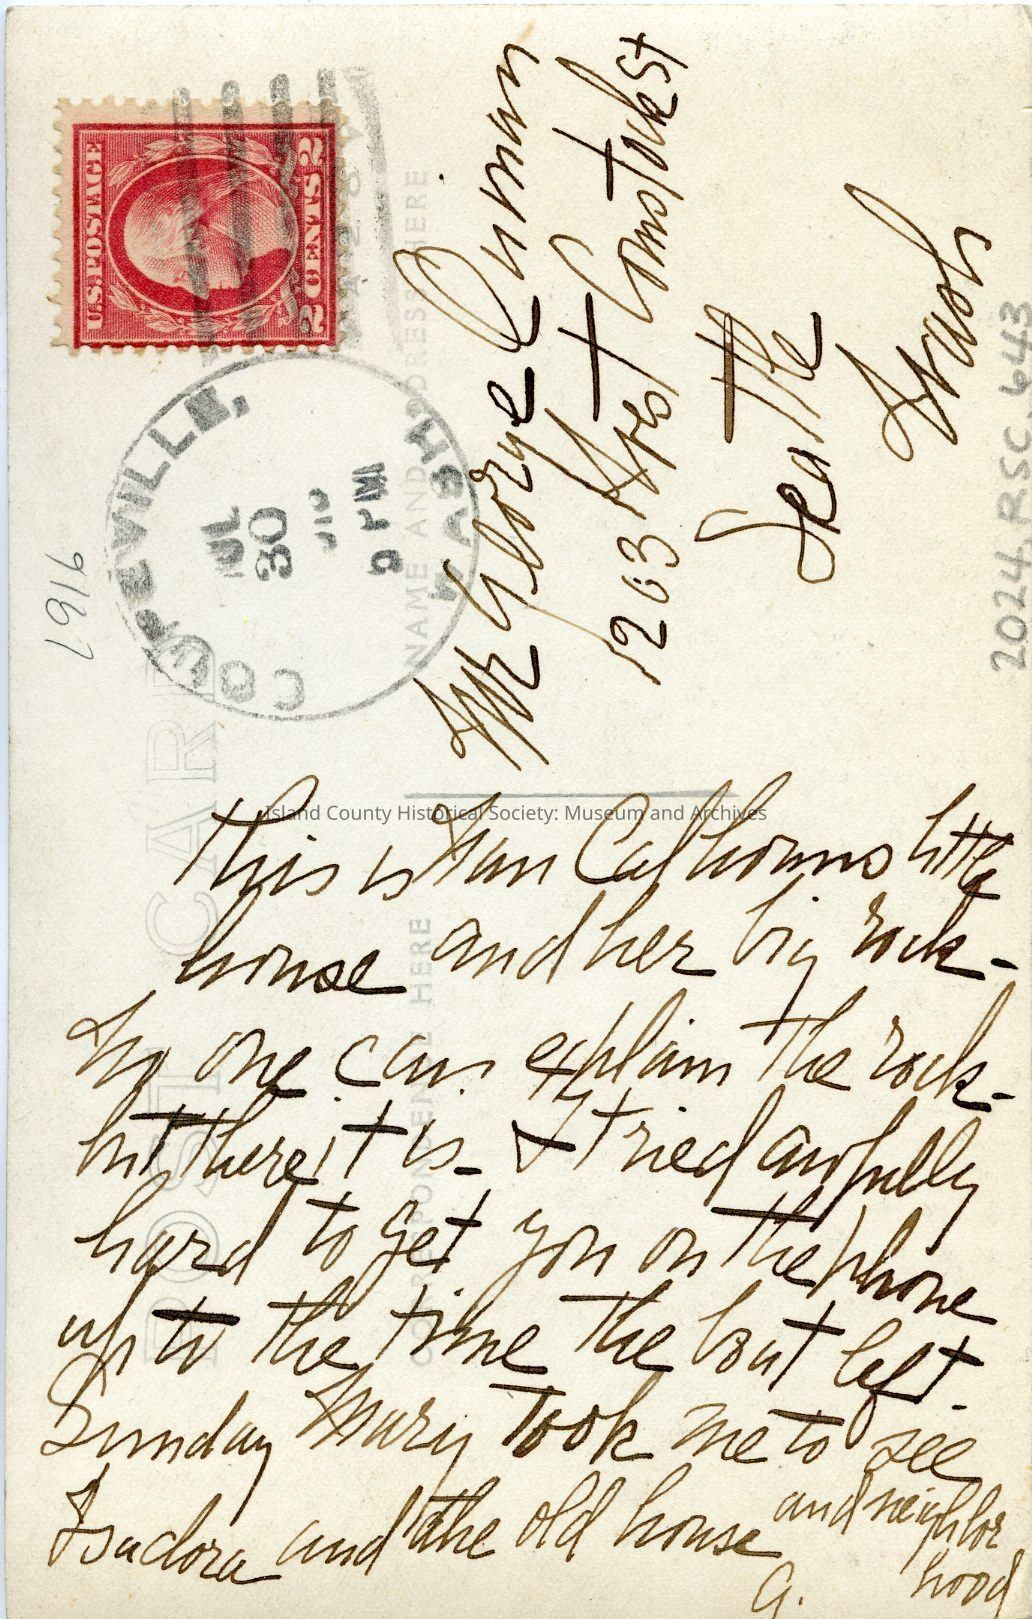 U.S. POSTAGE
2 CENTS 2
COUPEVILLE,
WASH
JUL
30
9 PM
1916
POST CARD
NAME AND ADDRESS HERE
CORRESPONDENCE HERE
Mr George Inman
1203 West Comstock St
Seattle
Wash
2024.RSC.643
Island County Historical Society: Museum and Archives
This is Nan Calhouns little
house and her big rock -
No one can explain the rock -
but there it is - I tried awfully
hard to get you on the phone
up to the time the boat left.
Sunday Mary took me to see
Isadora and the old house and neighbor
hood
A.